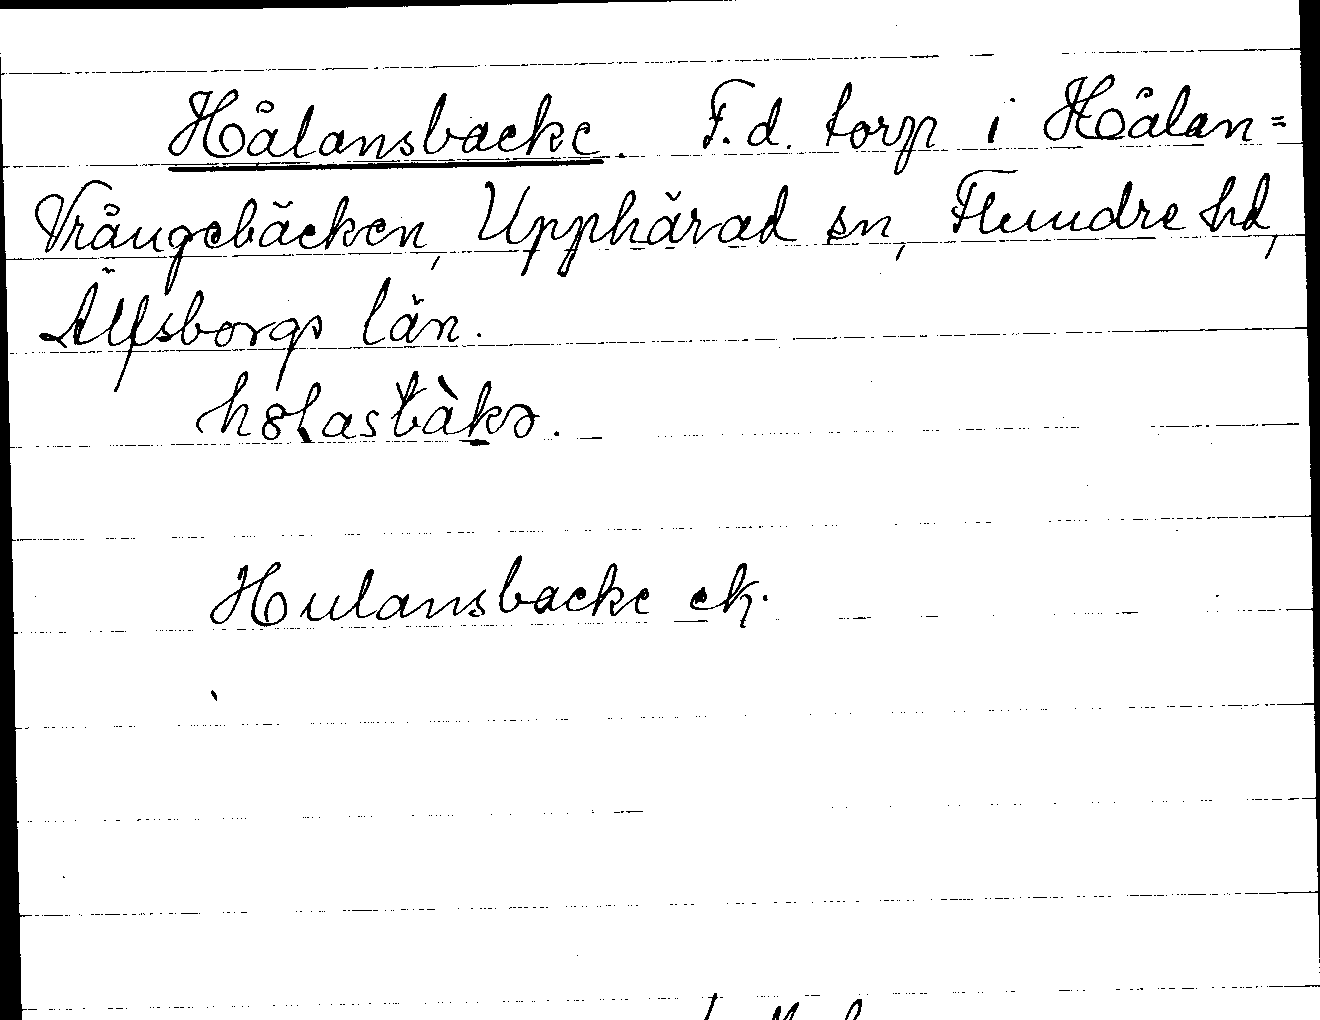 Hålansbacke. F.d. torp i Hålan=
Vrångebäcken, Upphärad sn, Flundre hd,
Älfsborgs län.
Hulansbacke ek.